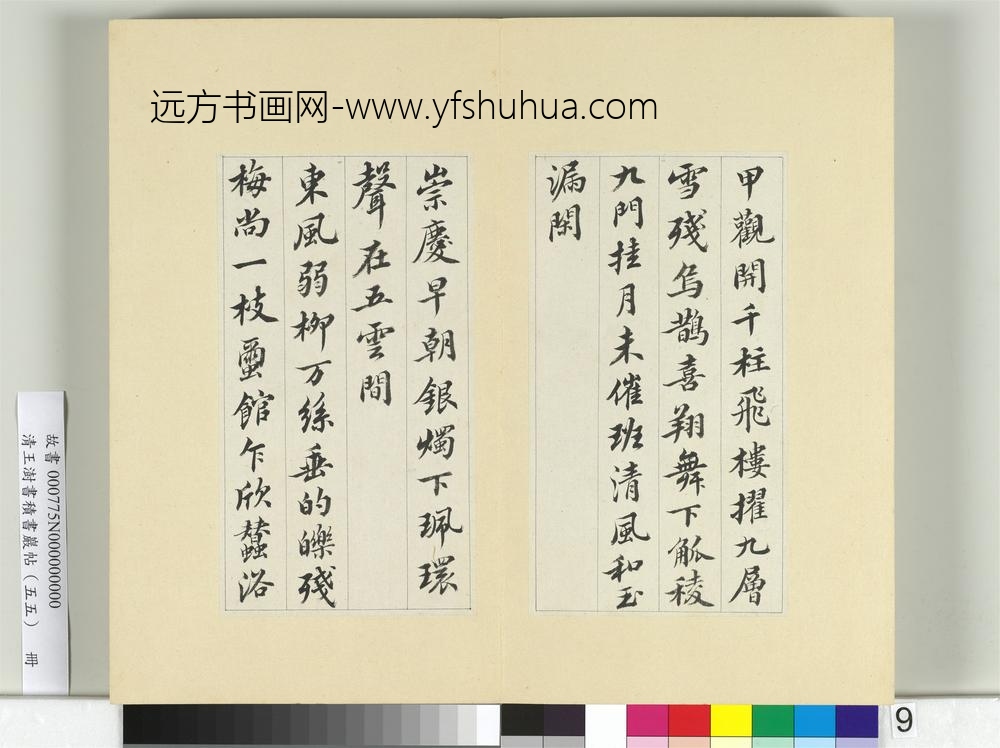 远方书画网-www.yfshuhua.com
甲觀開千柱飛樓擢九層
雪殘烏鵲喜翔舞下觚稜
九門挂月未催班清風和玉
漏閑
崇慶早朝銀燭下珮環
聲在五雲間
東風弱柳万絲垂的皪殘
梅尚一枝蠒館乍欣蠶浴
故書000775N000000000
清王澍書積書巖帖（五五） 冊
9